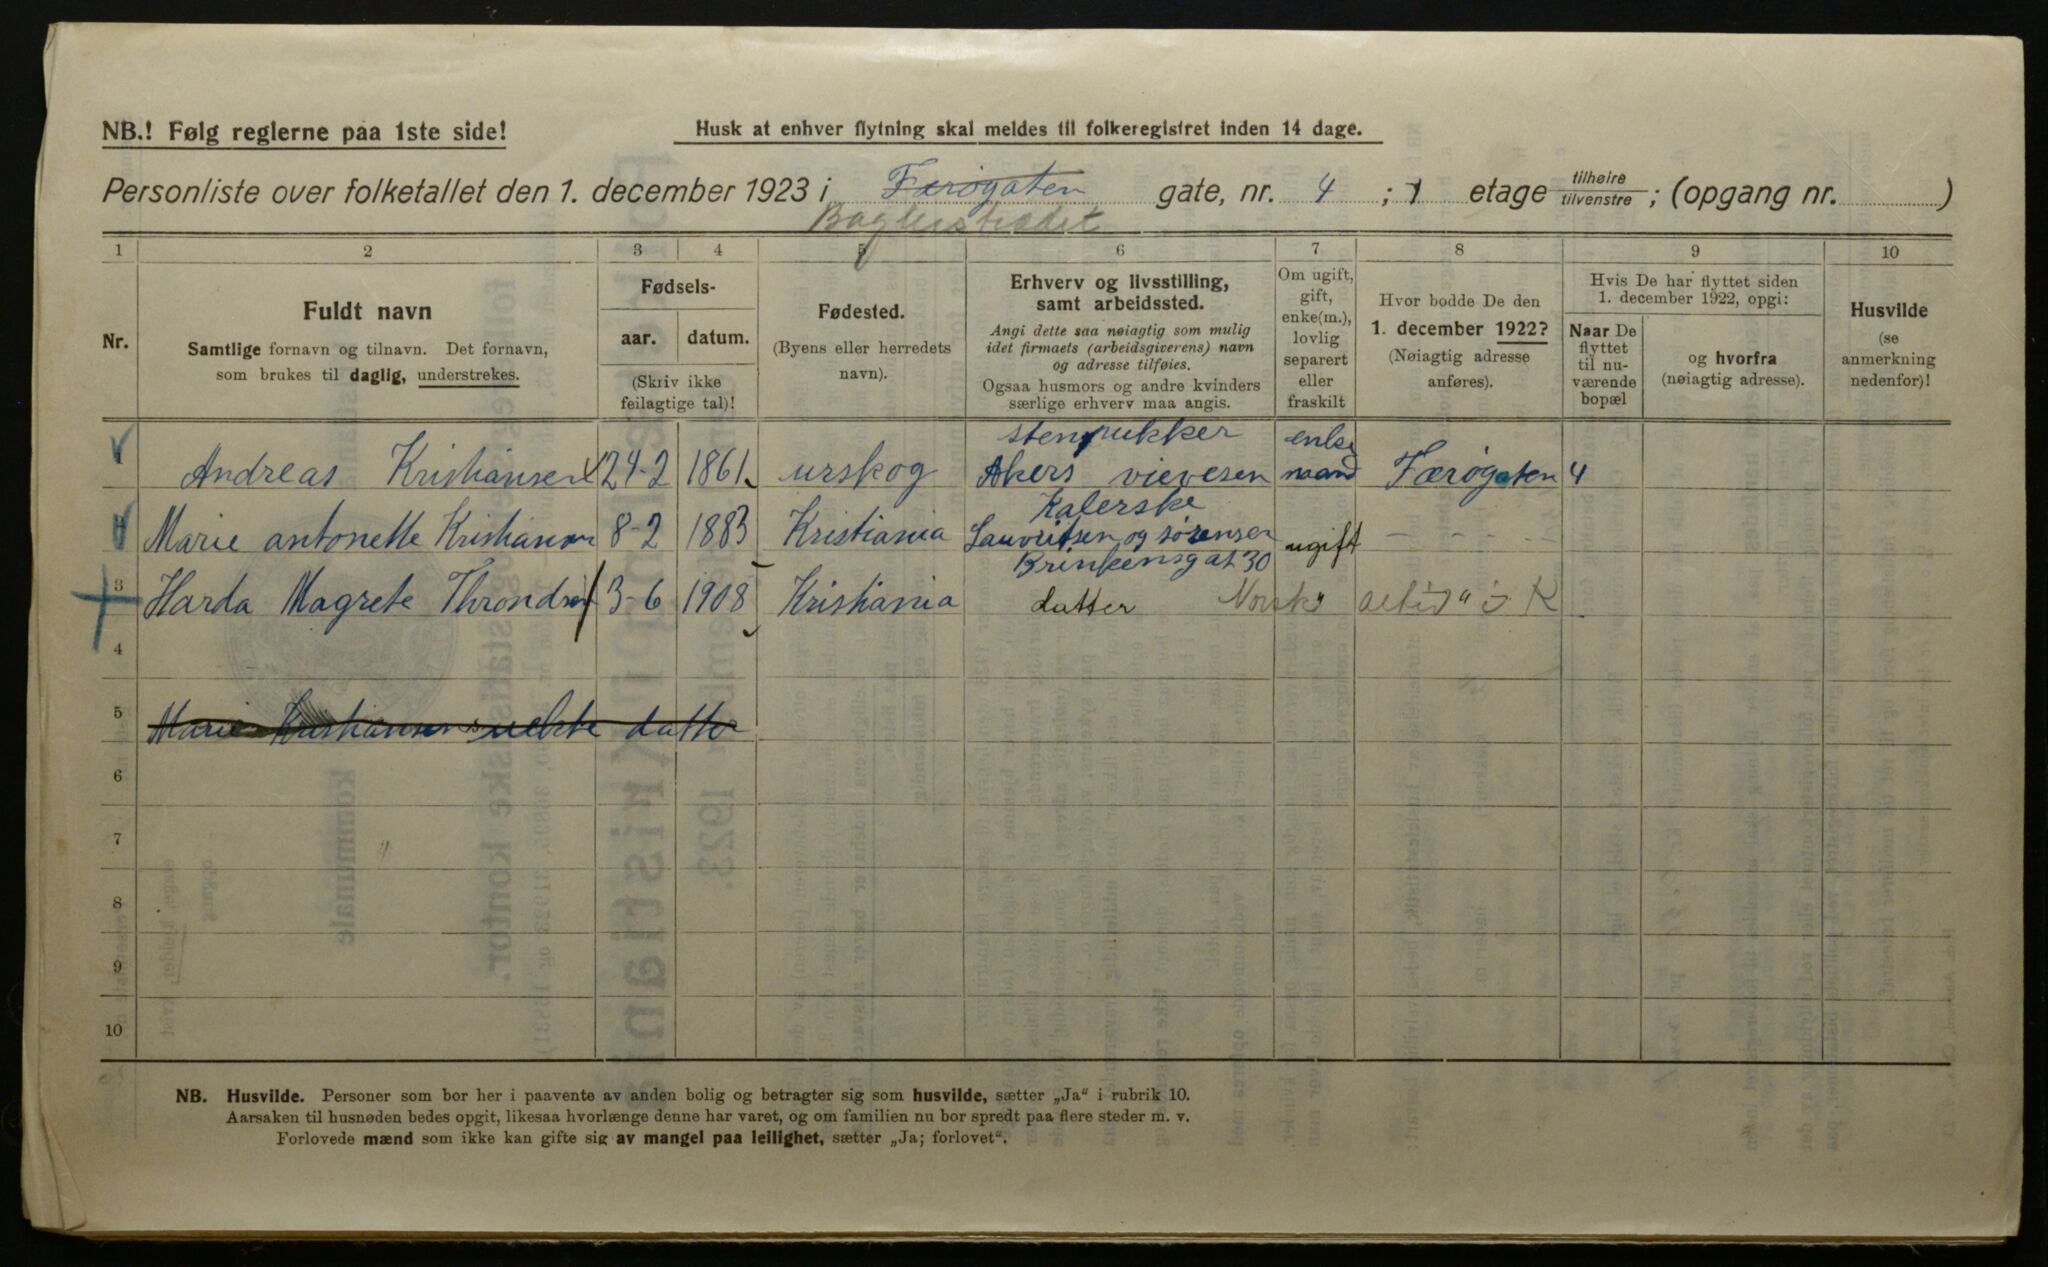 NB.! Følg reglerne paa 1ste side!
Husk at enhver flytning skal meldes til folkeregistret inden 14 dage.
Personliste over folketallet den 1. december 1923 i Færøgaten gate, nr. 4 ; 1 etage tilhøire/tilvenstre ; (opgang nr. )
Baglerstrædet
1 2 3 4 5 6 7 8 9 10
Nr.
Fuldt navn
Samtlige fornavn og tilnavn. Det fornavn,
som brukes til daglig, understrekes.
Fødsels-
aar. datum.
(Skriv ikke
feilagtige tal)!
Fødested.
(Byens eller herredets
navn).
Erhverv og livsstilling,
samt arbeidssted.
Angi dette saa nøiagtig som mulig
idet firmaets (arbeidsgiverens) navn
og adresse tilføies.
Ogsaa husmors og andre kvinders
særlige erhverv maa angis.
Om ugift,
gift,
enke(m.),
lovlig
separert
eller
fraskilt
Hvor bodde De den
1. december 1922?
(Nøiagtig adresse
anføres).
Hvis De har flyttet siden
1. december 1922, opgi:
Naar De
flyttet
til nu-
værende
bopæl
og hvorfra
(nøiagtig adresse).
Husvilde
(se
anmerkning
nedenfor)!
stenpukker enke
Andreas Kristiansen 24-2 1861 urskog Akers vievesen mand Færøgaten 4
Kalerske
Marie antonette Kristiansen 8-2 1883 Kristiania Lauvritsen og sørensen ugift - - - -
Brinkensgat 30
3 Harda Magrete Throndsen 3-6 1908 Kristiania datter Norsk altid i K
4
5 Marie Kristiansens uekte datter
6
7
8
9
10
NB. Husvilde. Personer som bor her i paavente av anden bolig og betragter sig som husvilde, sætter „Ja“ i rubrik 10.
Aarsaken til husnøden bedes opgit, likesaa hvorlænge denne har varet, og om familien nu bor spredt paa flere steder m. v.
Forlovede mænd som ikke kan gifte sig av mangel paa leilighet, sætter „Ja; forlovet“.